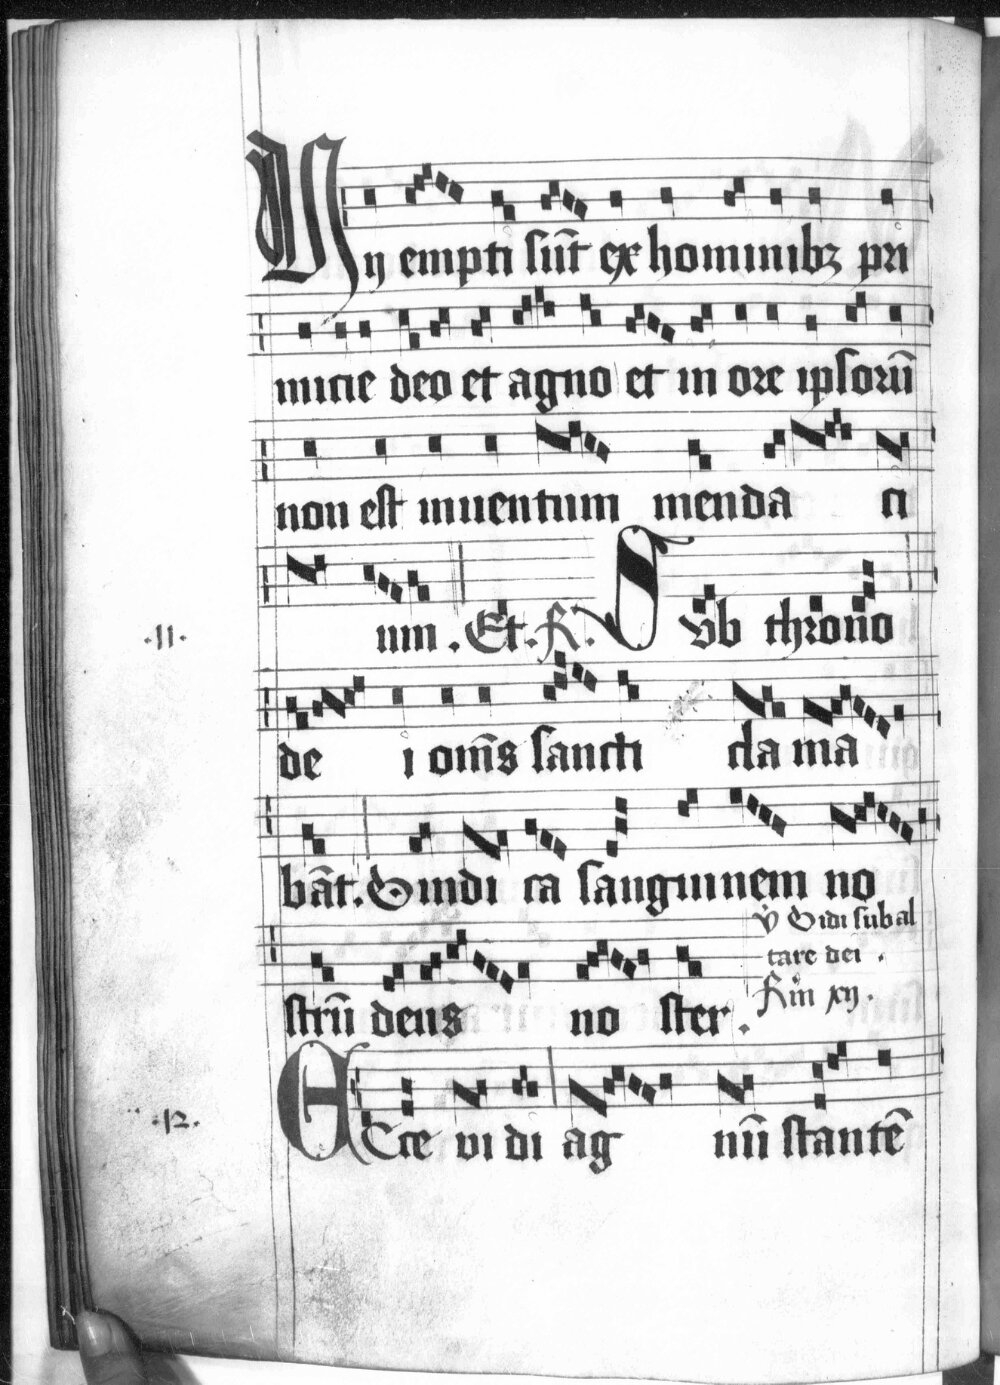 Hij empti sūt ex hominibꝫ pri
micie deo et agno et in ore ipsorū
non est inuentum menda ci
um . Et . R̸ . Sub throno
.11.
de i om̄s sancti cla ma
bāt. Vindi ca sanguinem no
strū deus no ster .
v̇ Vidi sub al
tare dei .
R̸ in xij .
.12.
Ecce vi di ag nū stantē